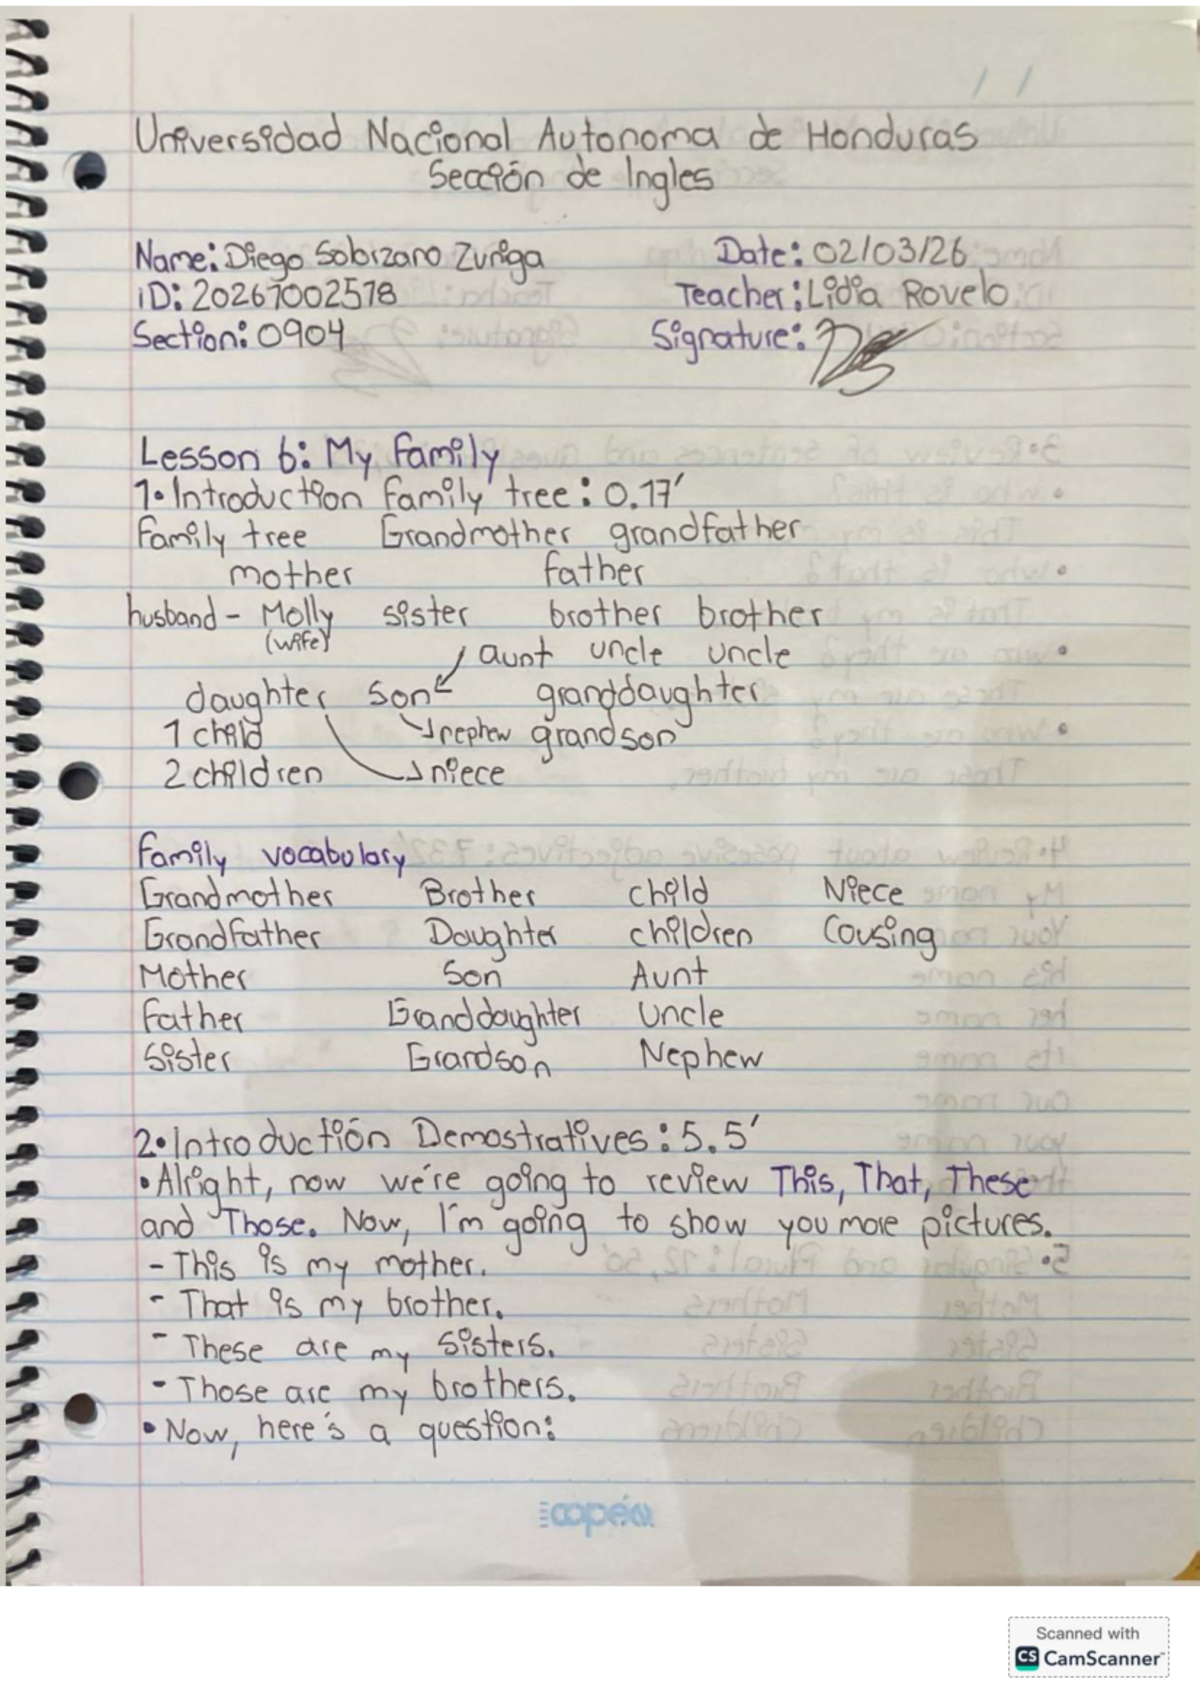 Universidad Nacional Autonoma de Honduras
Sección de Ingles
Name: Diego Sobrzano Zuriga
Date: 02/03/26
ID: 20267002578
Teacher: Lidia Rovelo
Section: 0904
Signature:
Lesson 6: My Family
1• Introduction family tree: 0.17'
Family tree Grandmother grandfather
mother father
husband - Molly sister brother brother
(wife)
aunt uncle uncle
daughter son granddaughter
1 child nephew grandson
2 children niece
Family vocabulary
Grandmother Brother child Niece
Grandfather Daughter children Cousing
Mother Son Aunt
Father Granddaughter Uncle
Sister Grardson Nephew
2• Introductión Demostratives: 5.5'
• Alright, now we're going to review This, That, These
and Those. Now, I'm going to show you more pictures.
- This is my mother.
- That is my brother.
- These are my sisters.
- Those are my brothers.
• Now, here's a question:
copán
Scanned with
CS CamScanner